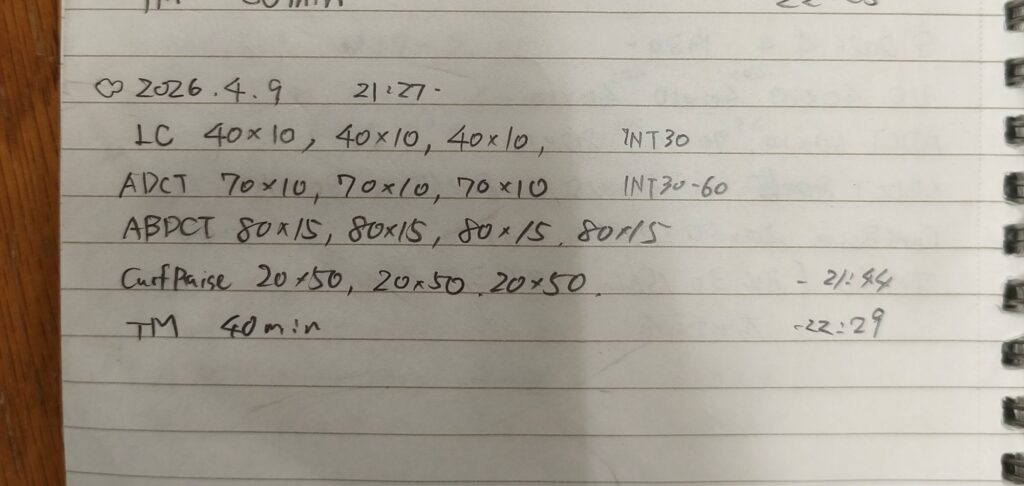 2026.4.9 21:27-
LC 40×10, 40×10, 40×10, INT30
ADCT 70×10, 70×10, 70×10 INT30-60
ABDCT 80×15, 80×15, 80×15, 80×15
CurfRaise 20×50, 20×50, 20×50. - 21:44
TM 40min -22:29